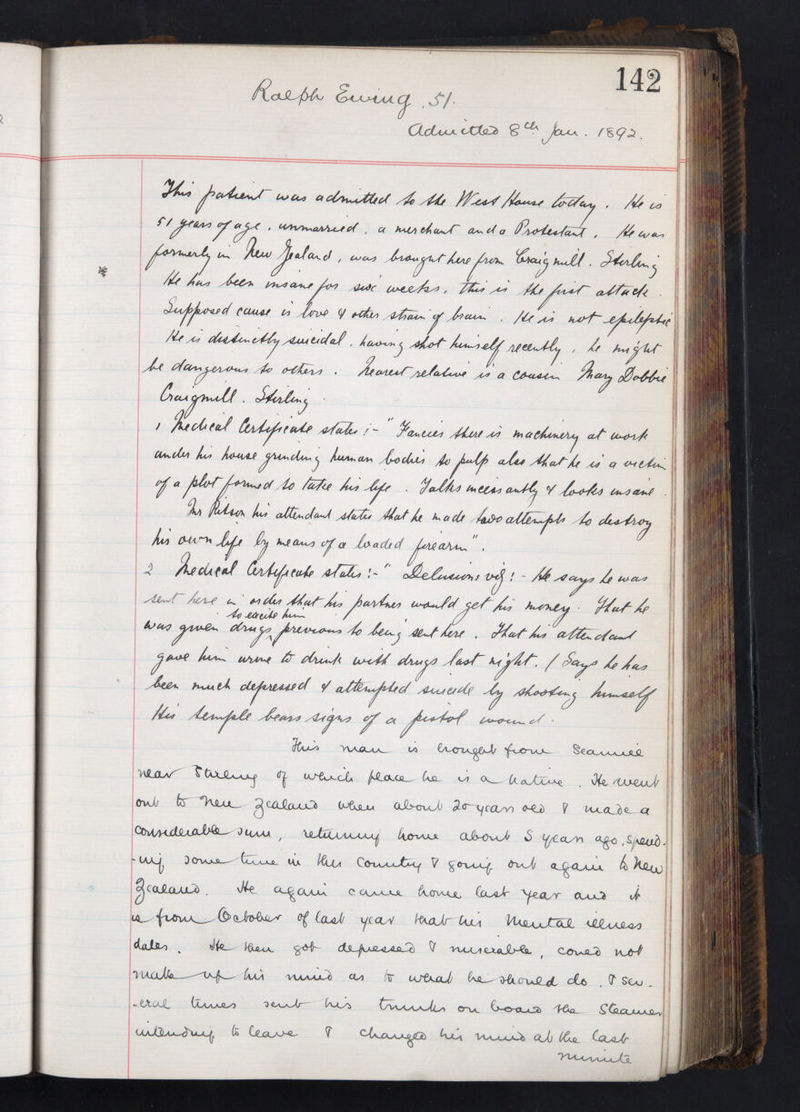 142
Ralph Ewing. 51.
Admitted 8th Jan. 1892.
This patient was admitted to the West House today. He is
51 years of age, unmarried, a merchant and a Protestant. He was
formerly in New Zealand, was brought here from Craigmill. Stirling
He has been insane for six weeks, this is the first attack.
Supposed cause is love & other strain of brain. He is not epileptic
He is distinctly suicidal, having shot himself recently, he might
be dangerous to others. Nearest relative is a cousin Mary Dobbie
Craigmill. Stirling.
1 Medical Certificate states:- "Fancies there is machinery at work
under his house grinding human bodies to pulp also that he is a victim
of a plot formed to take his life. Talks incessantly & looks insane.
Mr his attendant states that he made two attempts to destroy
his own life by means of a loaded firearm".
2 Medical Certificate states:- "Delusions viz:- He says he was
sent here in order that his partner would get his money. That he
to excite him
was given drugs, previous to being sent here. That his attendant
gave him urine to drink with drugs last night. / Says he has
been much depressed & attempted suicide by shooting himself
His temple bears signs of a pistol wound.
This man is brought from
near Stirling of which place he is a native. He went
out to New Zealand when about 20 years old & made a
considerable sum, returning home about 5 years ago, spend-
-ing some time in this country & going out again to New
Zealand. He again came home last year and it
is from October of last year that his mental illness
dates. He then got depressed & miserable, could not
make up his mind as to what he should do. & sev-
-eral times sent his trunks on board the Steamer
intending to leave & changed his mind at the last
minute